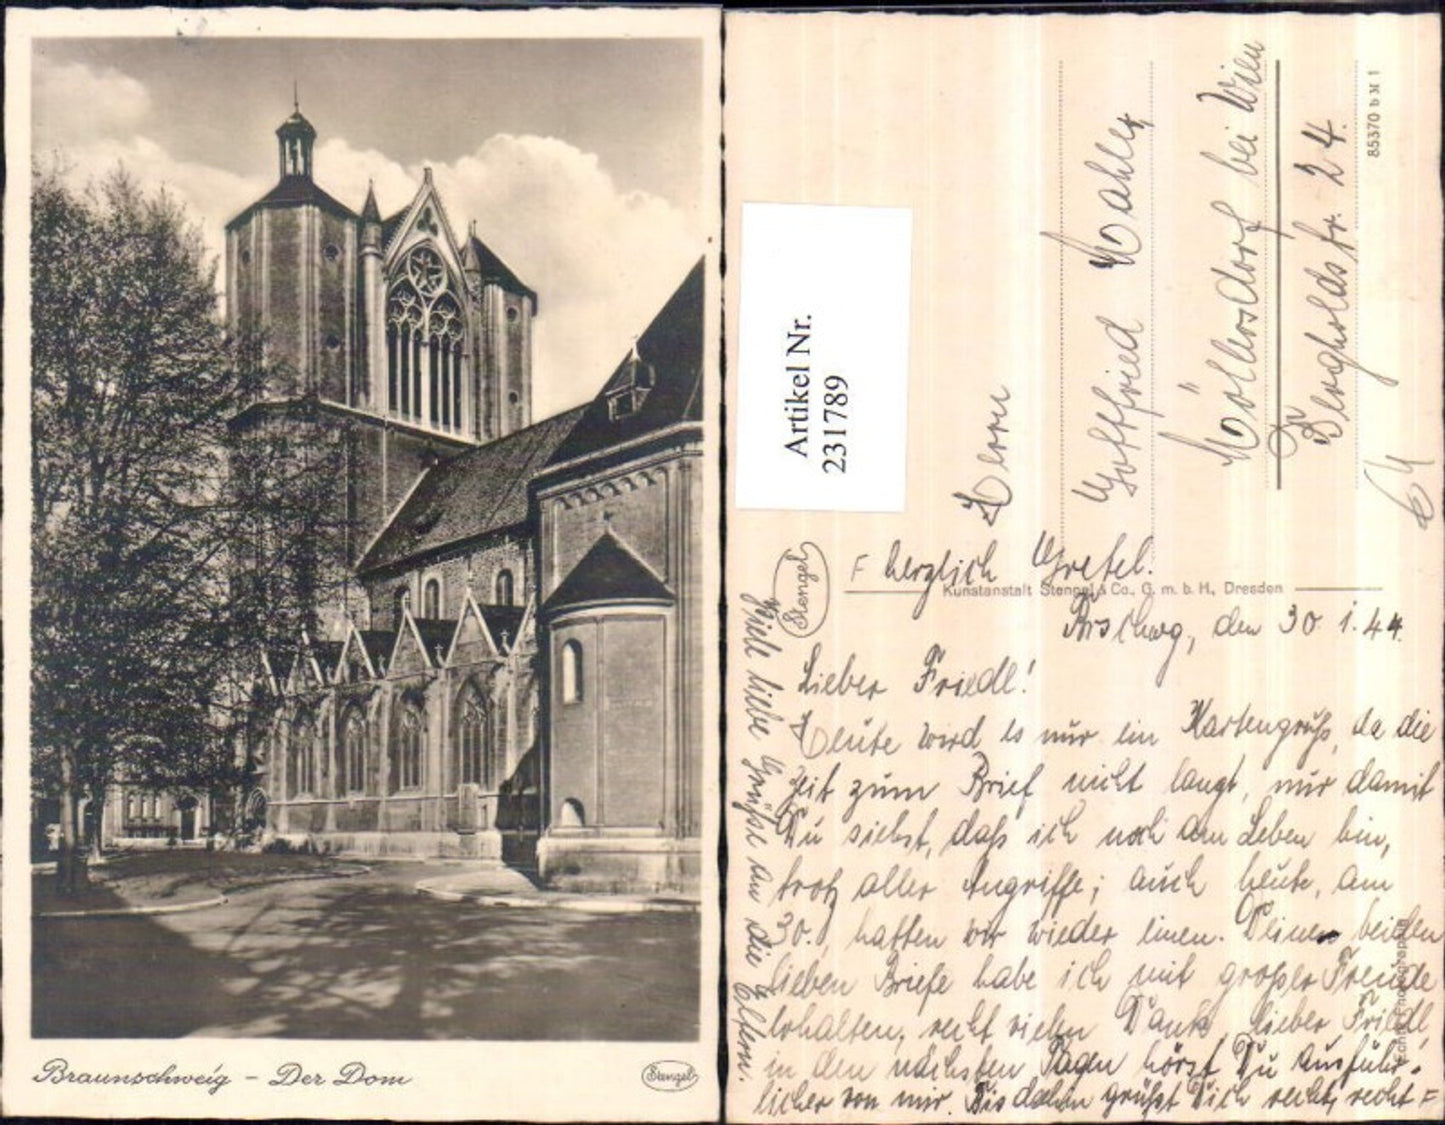 Braunschweig - Der Dom
Stengel
Artikel Nr.
231789
Herrn
Gottfried
Möllersdorf bei Wien
Bergholdstr. 24.
85370 b M 1
Stengel
Kunstanstalt Stengel & Co., G. m. b. H., Dresden
den 30 1. 44.
Lieber Friedl!
Heute wird es nur ein Kartengruß, da die
Zeit zum Brief nicht langt, nur damit
Du siehst, daß ich noch am Leben bin,
trotz aller Angriffe; auch heute, am
30., hatten wir wieder einen. Deine beiden
lieben Briefe habe ich mit großer Freude
erhalten, recht vielen Dank, lieber Friedl,
in den nächsten Tagen hörst Du ausführ-
licher von mir. Bis dahin grüßt Dich recht, recht =
= herzlich Gretel.
Viele liebe Grüße an die Eltern.